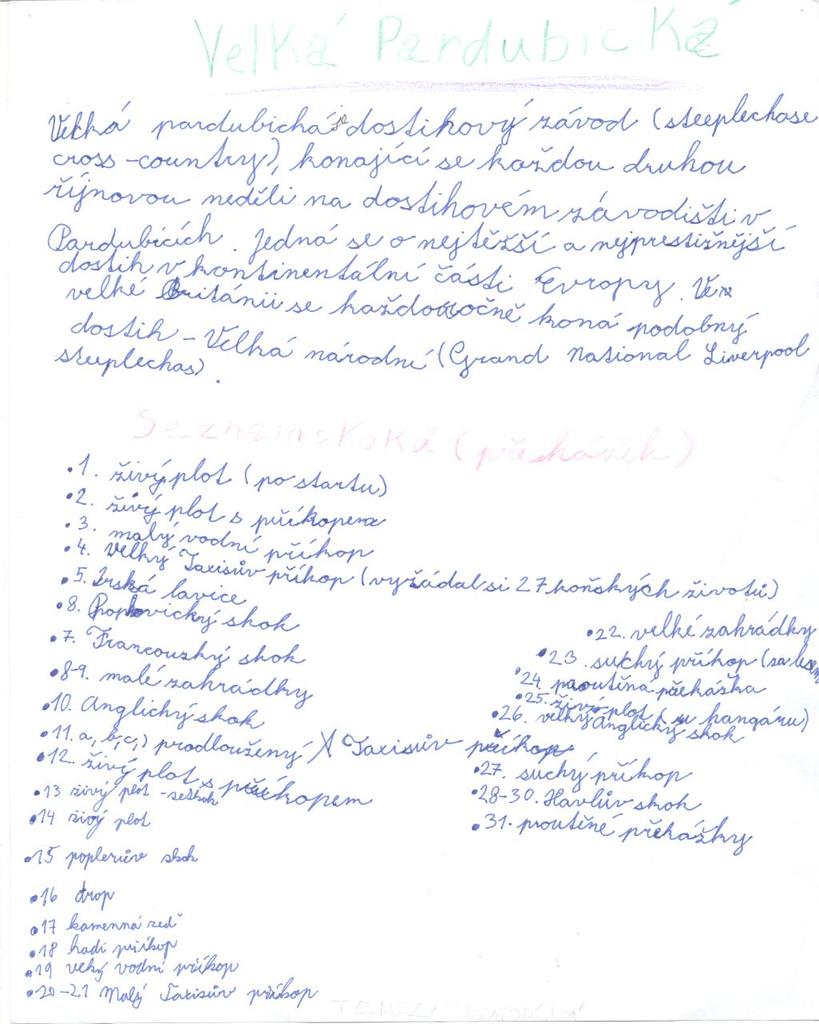 Velká Pardubická
Velká pardubická je dostihový závod (steeplechase
cross-country), konající se každou druhou
říjnovou neděli na dostihovém závodišti v
Pardubicích. Jedná se o nejtěžší a nejprestižnější
dostih v kontinentální části Evropy. Ve
velké Británii se každoročně koná podobný
dostih - Velká národní (Grand National Liverpool
steeplechas).
Seznam skoků (překážek)
•1. živý plot (po startu)
•2. živý plot s příkopem
•3. malý vodní příkop
•4. velký Taxisův příkop (vyžádal si 27 koňských životů)
•5. Irská lavice
•8. Popkovický skok
•7. Francouzský skok
•8-9. malé zahrádky
•10. Anglický skok
•11. a, b, c,) prodloužený Taxisův příkop
•12. živý plot s příkopem
•13 živý plot - seskok
•14 živý plot
•15 poplerův skok
•16 drop
•17 kamenná zeď
•18 hadí příkop
•19 velký vodní příkop
•20-21 Malý Taxisův příkop
•22. velké zahrádky
•23. suchý příkop (za lesem
•24. proutěna překážka
•25. živý plot (u hangáru)
•26. velký Anglický skok
•27. suchý příkop
•28-30. Havlův skok
•31. proutěné překážky